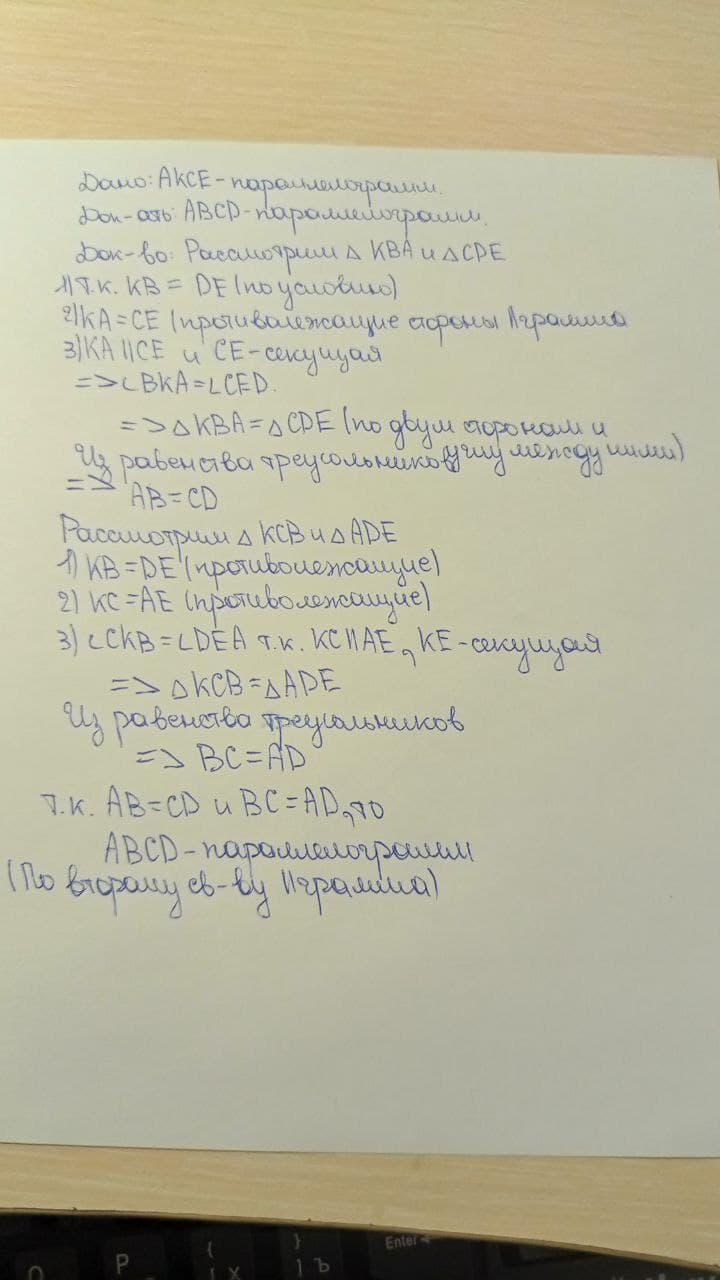 Дано: AKCE-параллелограмм.
Док-ать: ABCD-параллелограмм.
Док-во: Рассмотрим △ KBA и △ CDE
1) т.к. KB = DE (по условию)
2) KA = CE (противолежащие стороны ||грамма
3) KA || CE и CE-секущая
=> ∠BKA = ∠CED.
=> △ KBA = △ CDE (по двум сторонам и
Из равенства треугольников углу между ними)
=> AB = CD
Рассмотрим △ KCB и △ ADE
1) KB = DE (противолежащие)
2) KC = AE (противолежащие)
3) ∠CKB = ∠DEA т.к. KC || AE, KE-секущая
=> △ KCB = △ ADE
Из равенства треугольников
=> BC = AD
т.к. AB = CD и BC = AD, то
ABCD-параллелограмм
(По второму св-ву ||грамма)
P
{
}
Enter
[
X
]
Ъ